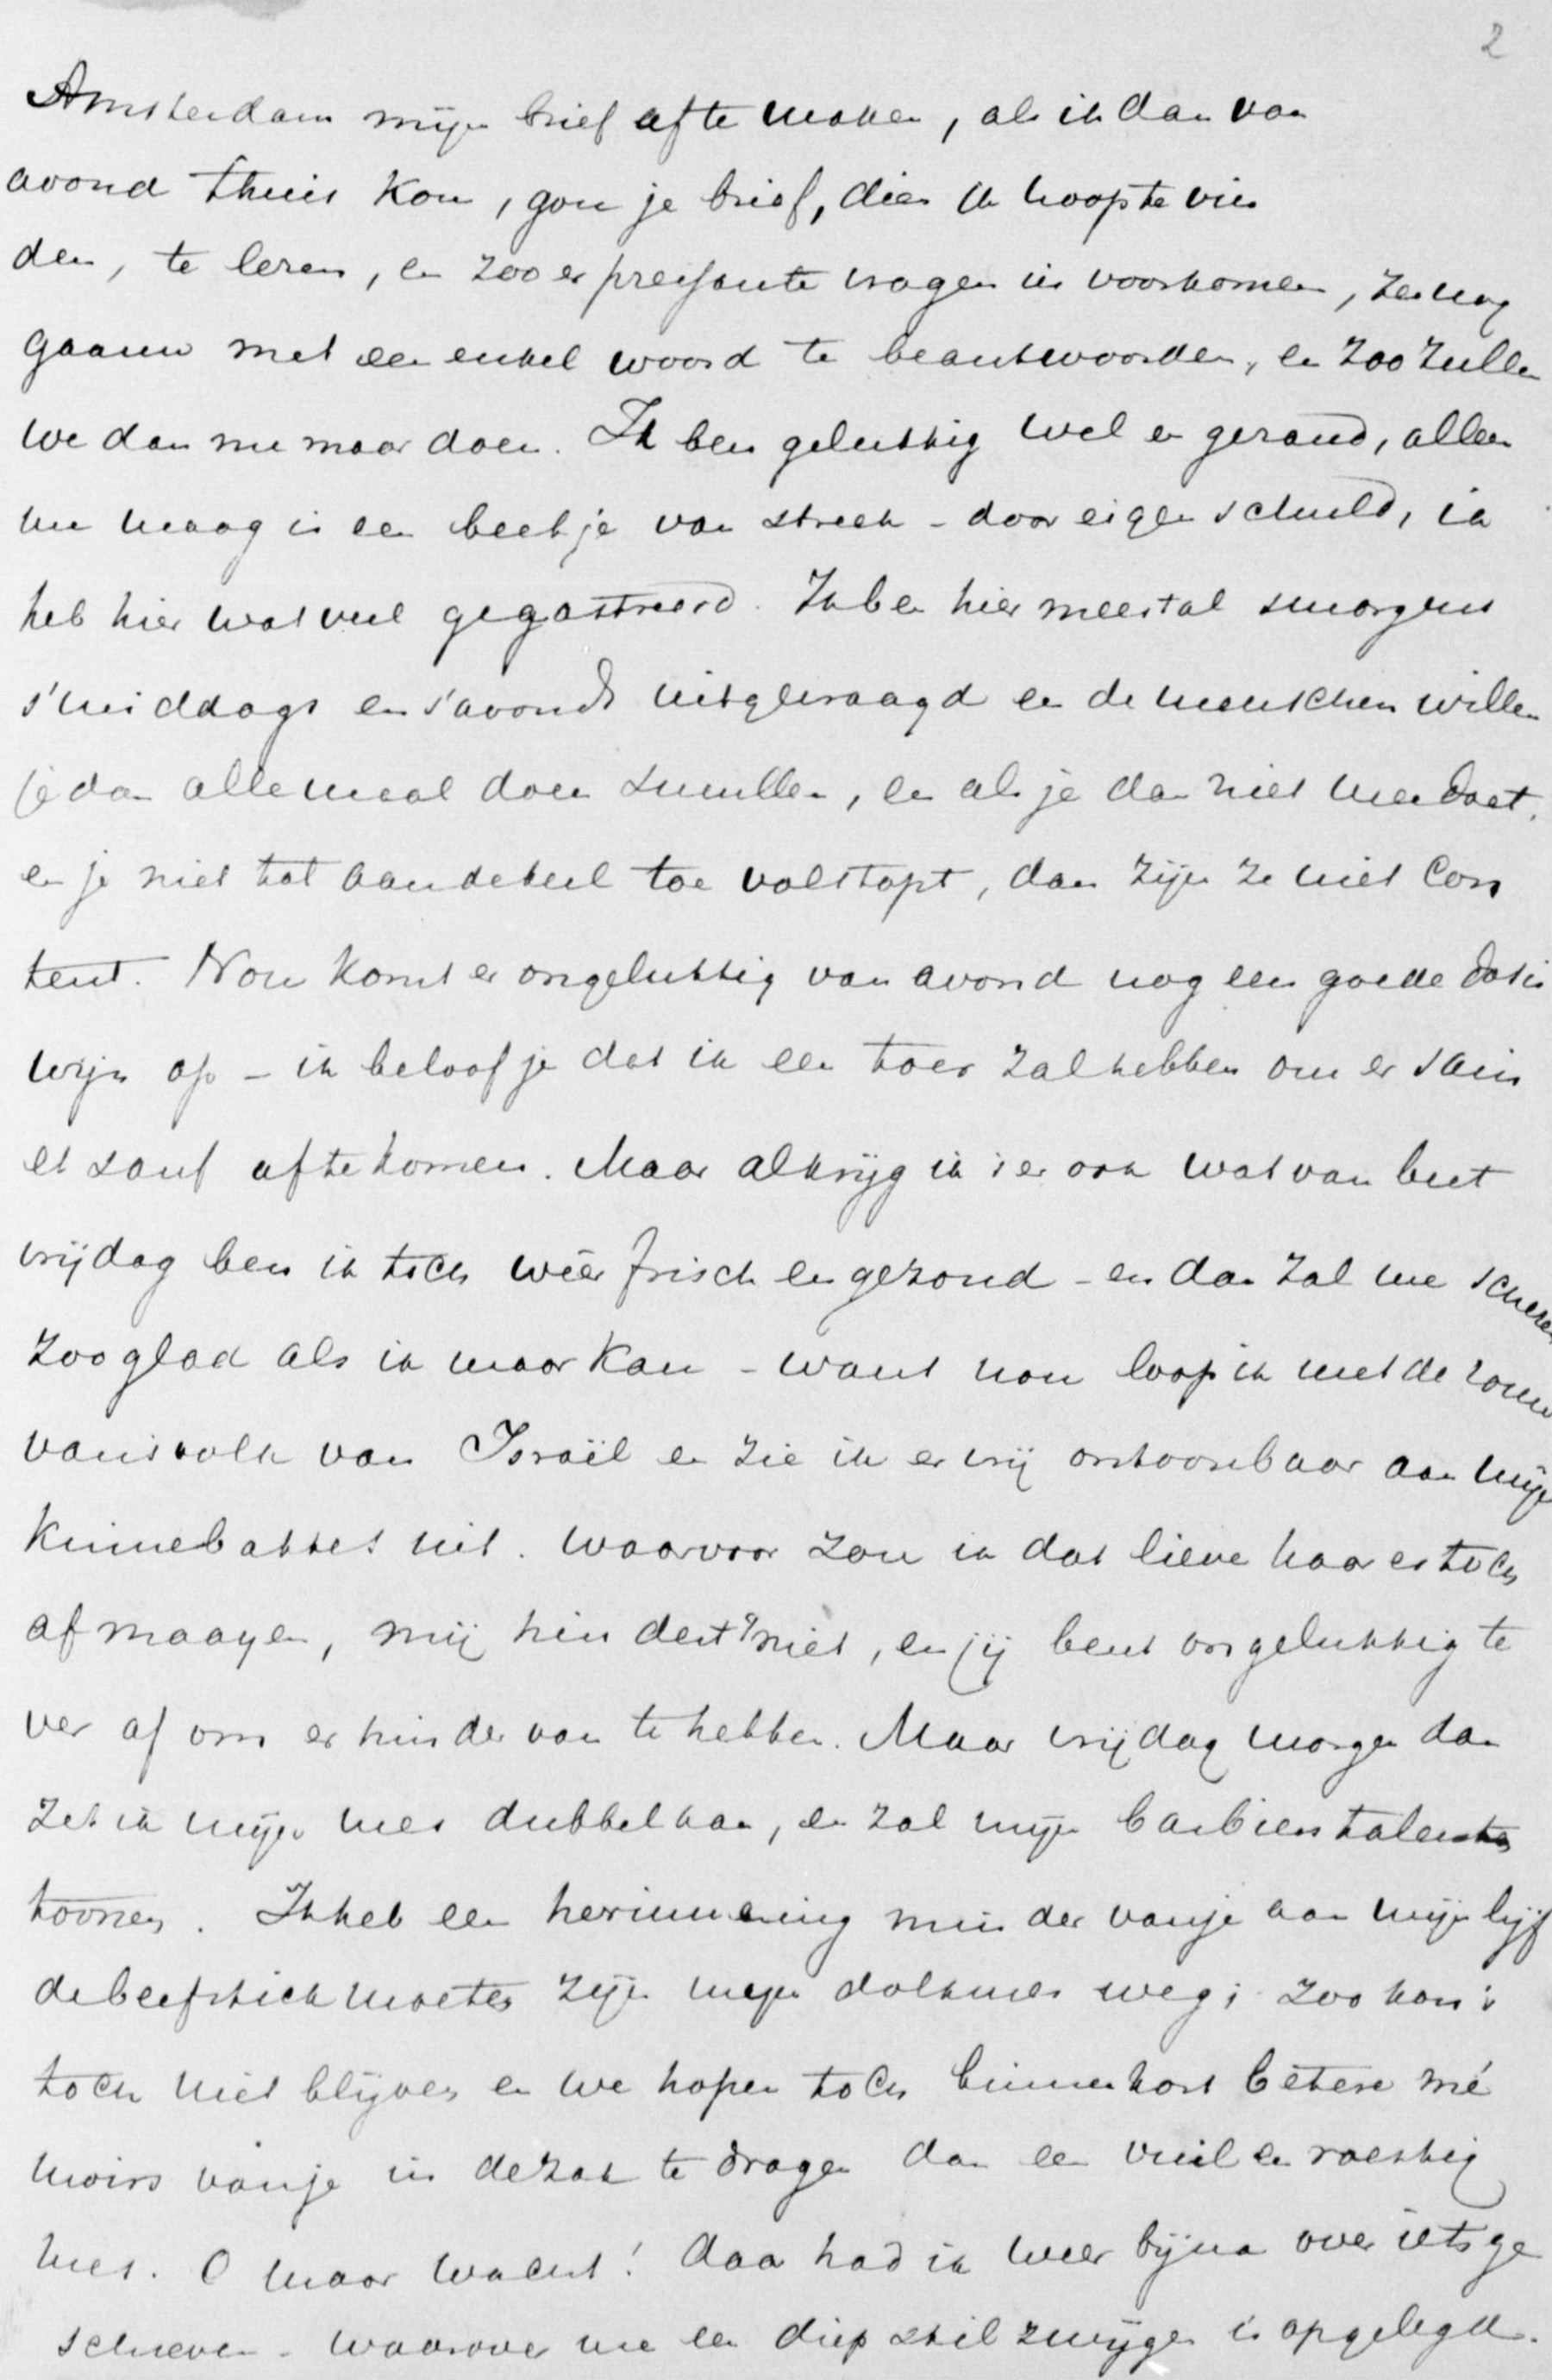 2
Amsterdam mijn brief af te maken, als ik dan van
avond thuis kom, gou je brief, dien ik hoop te vin
den, te lezen, en zoo er pressante vragen in voorkomen, ze nog
gaauw met een enkel woord te beantwoorden, en zoo zullen
we dan nu maar doen. Ik ben gelukkig wel en gezond, alleen
me maag is een beetje van streek - door eigen schuld, ik
heb hier wat veel gegastreerd. Ik ben hier meestal smorgens
s'middags en s'avonds uitgevraagd en de menschen willen
je dan allemaal doen smullen, en als je dan niet meedoet,
en je niet tot aan de keel toe volstopt, dan zijn ze niet con
tent. Nou komt er ongelukkig van avond nog een goede dosis
wijn op - ik beloof je dat ik een toer zal hebben om er sain
et sauf af te komen. Maar al krijg ik er ook wat van beet
vrijdag ben ik toch wéer frisch en gezond - en dan zal me scheren
zoo glad als ik maar kan - want nou loop ik met de rouw
van 't volk van Israël en zie ik er vrij ontoonbaar aan mijn
kinnebakkes uit. Waarvoor zou ik dat lieve haar er toch
af maayen, mij hindert 't niet, en jij bent ongelukkig te
ver af om er hinder van te hebben. Maar vrijdag morgen dan
zet ik mijn mes dubbel aan, en zal mijn barbiers talenten
toonen. Ik heb een herinnering minder van je aan mijn lijf
de beefstick moetes zijn mijn dolkmes weg; zoo kon 't
toch niet blijven en we hopen toch binnenkort betere mé
moirs van je in de zak te dragen dan een vuil en roestig
mes. O maar wacht! daar had ik weer bijna over iets ge
schreven - waarover me een diep stilzwijgen is opgelegd.